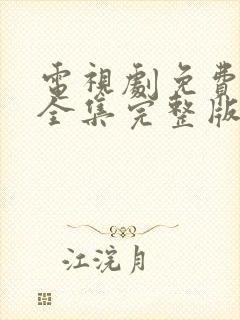 電視劇免費
全集完整版
江浣月